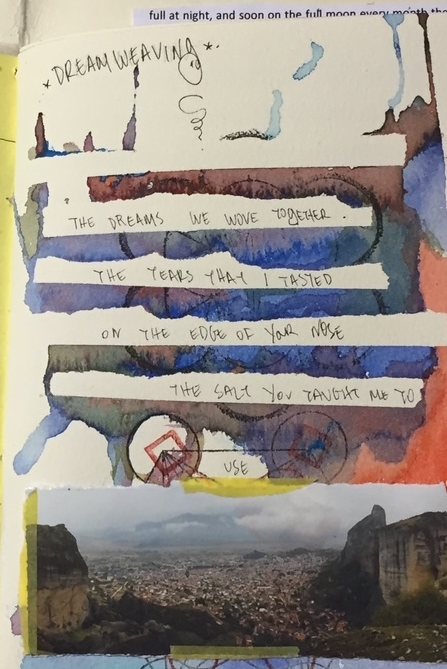 full at night, and soon on the full moon every month the
*DREAMWEAVING*.
THE DREAMS WE WOVE TOGETHER.
THE TEARS THAT I TASTED
ON THE EDGE OF YOUR NOSE
THE SALT YOU TAUGHT ME TO
USE